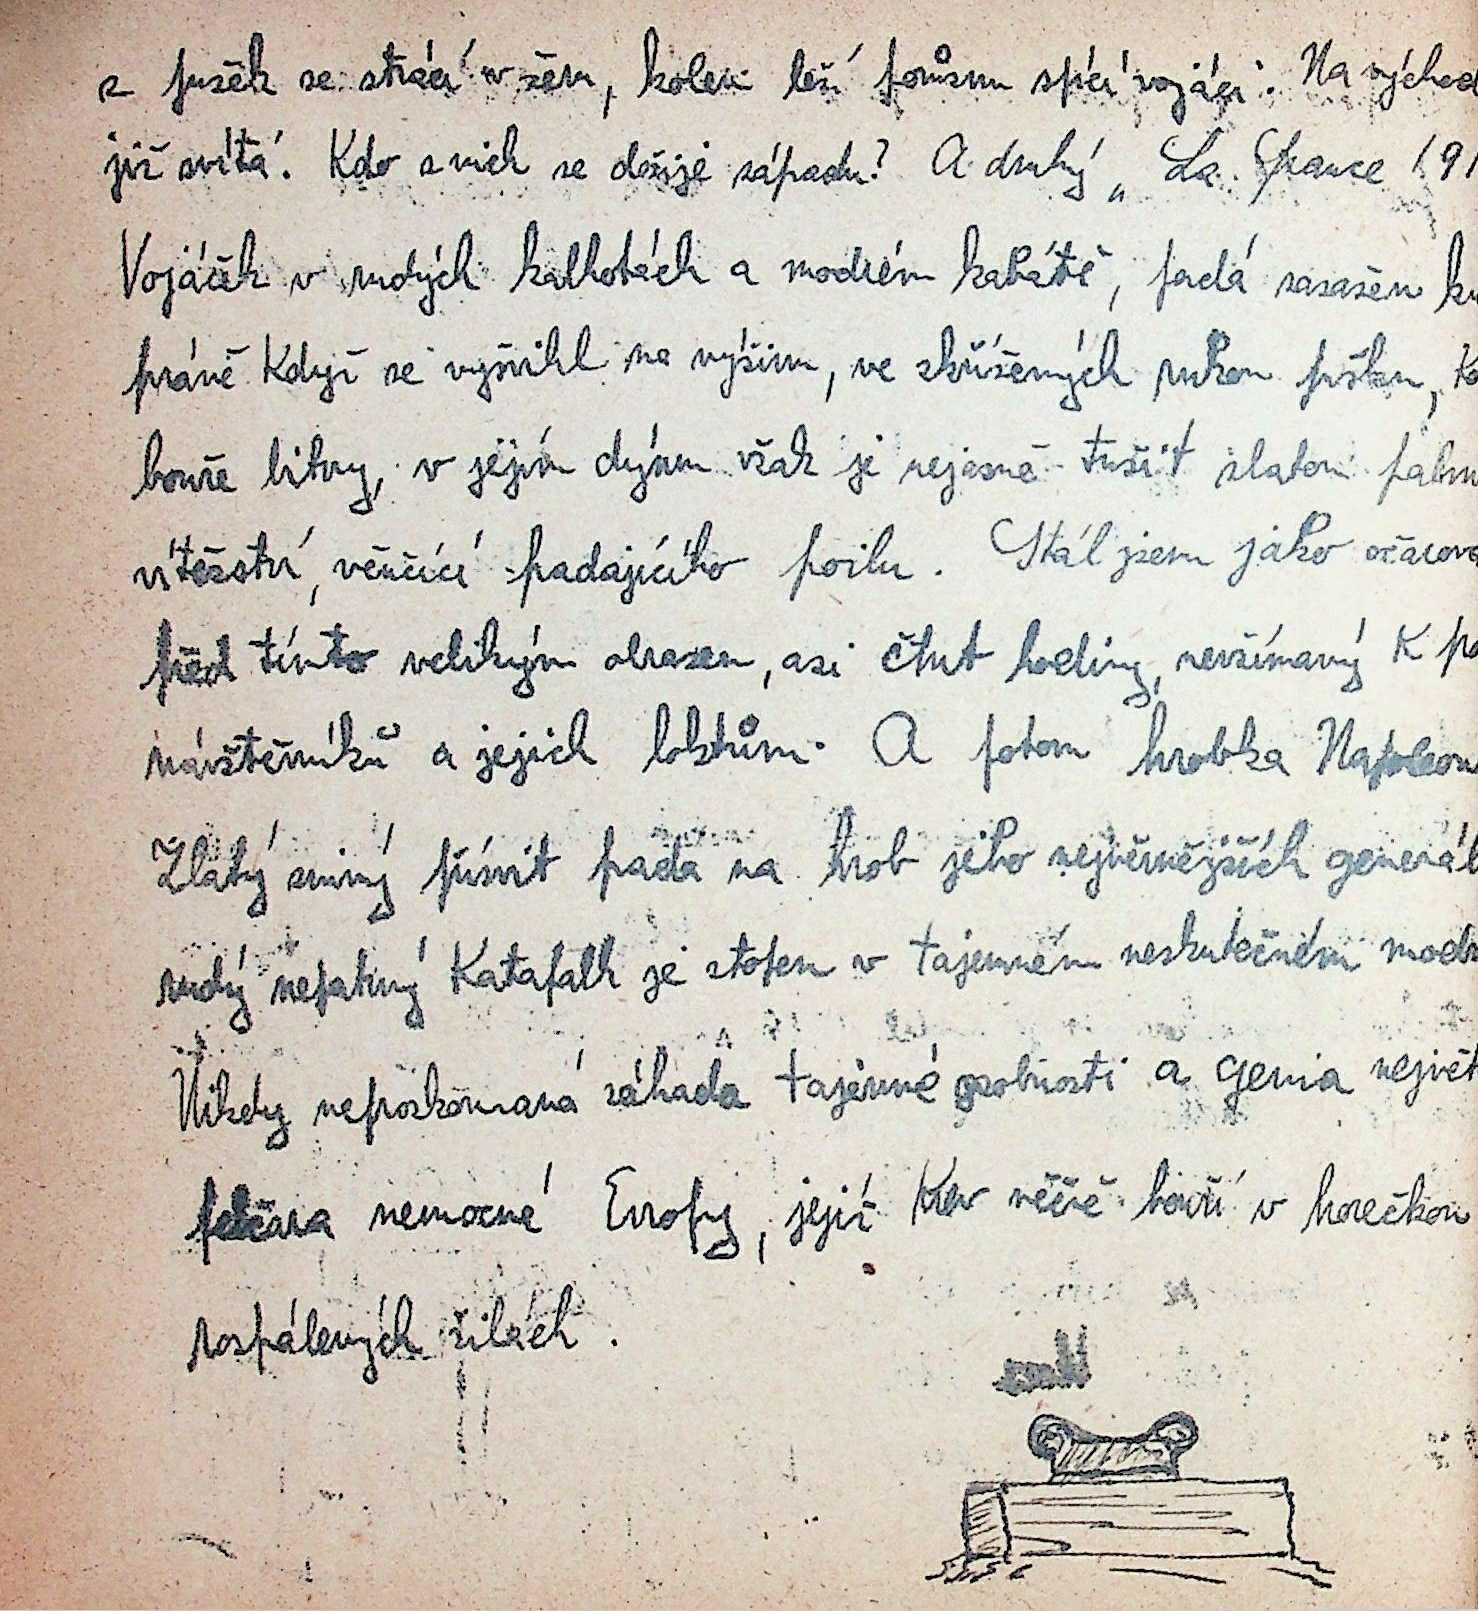 z pušek se ztrácí v šeru, kolem leží různu spící vojáci. Na východ
již svítá. Kdo z nich se dožije západu? A druhý „La France 191
Vojáček v rudých kalhotách a modrém kabátě, padá zasažen ku
právě když se vyšvihl na výšinu, ve zkřížených rukou pušku, ko
bouře bitvy, v jejím dýmu však je nejasně tušit zlatou palmu
vítězství, věnčící padajícího poilu. Stál jsem jako očarova
před tímto velikým obrazem, asi čtvrt hodiny, nevšímavý k po
návštěvníků a jejich loktům. A potom hrobka Napoleon
Zlatý snivý přísvit padá na hrob jeho nejvěrnějších generál
rudý nepatrný katafalk je stopen v tajemném neskutečném modr
Nikdy neproskoumaná záhada tajemné osobnosti a genia největ
felčara nemocné Evropy, jejíž krev věčně bouří v horečkou
rozpálených žilách.